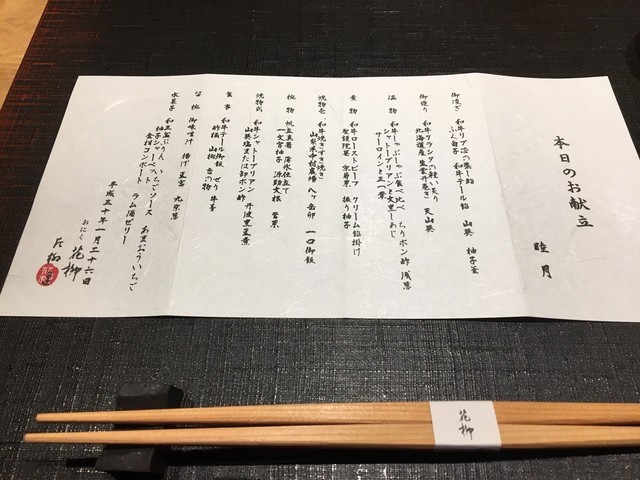 本日のお献立
睦月
御凌ぎ 和牛リブ芯の蒸し鮨 山葵 柚子釜
ふく白子 和牛テール餡
御造り 和牛クラシタの軽い炙り
北海道産生雲丹巻き 天山葵
温物 和牛しゃぶしゃぶ食べ比べ ちりポン酢 浅葱
シャトーブリアンと文里一あじ
サーロインと三つ葉
煮物 和牛ローストビーフ クリーム餡掛け
聖護院蕪 京壬菜 振り柚子
焼物壱 和牛焼きすき焼き
山梨 中村農場 八ヶ岳卵 一口御飯
椀物 帆立真薯 薄氷仕立て
一文字柚子 源助大根 鶯菜
焼物弐 和牛シャトーブリアン 丹波黒豆煮
山葵 塩 又は 卸ポン酢
食事 和牛テール御飯 せり 牛蒡
酢橘 山椒 香の物
留椀 御味噌汁 揚げ豆富 九条葱
水菓子 和三盆ぷりん いちごソース あまおういちご
柚子シャーベット
金柑コンポート ラム酒ゼリー
平成三十年一月二十六日
おにく 花柳
花柳